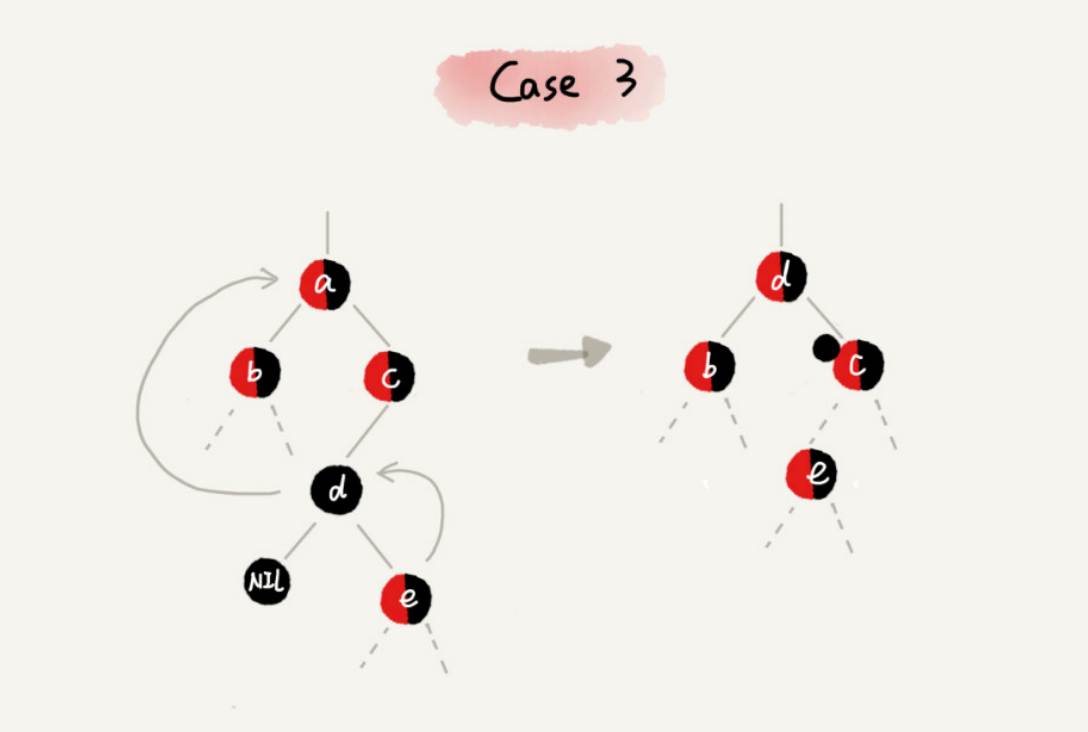 Case 3
a
b
c
d
NIL
e
d
b
c
e